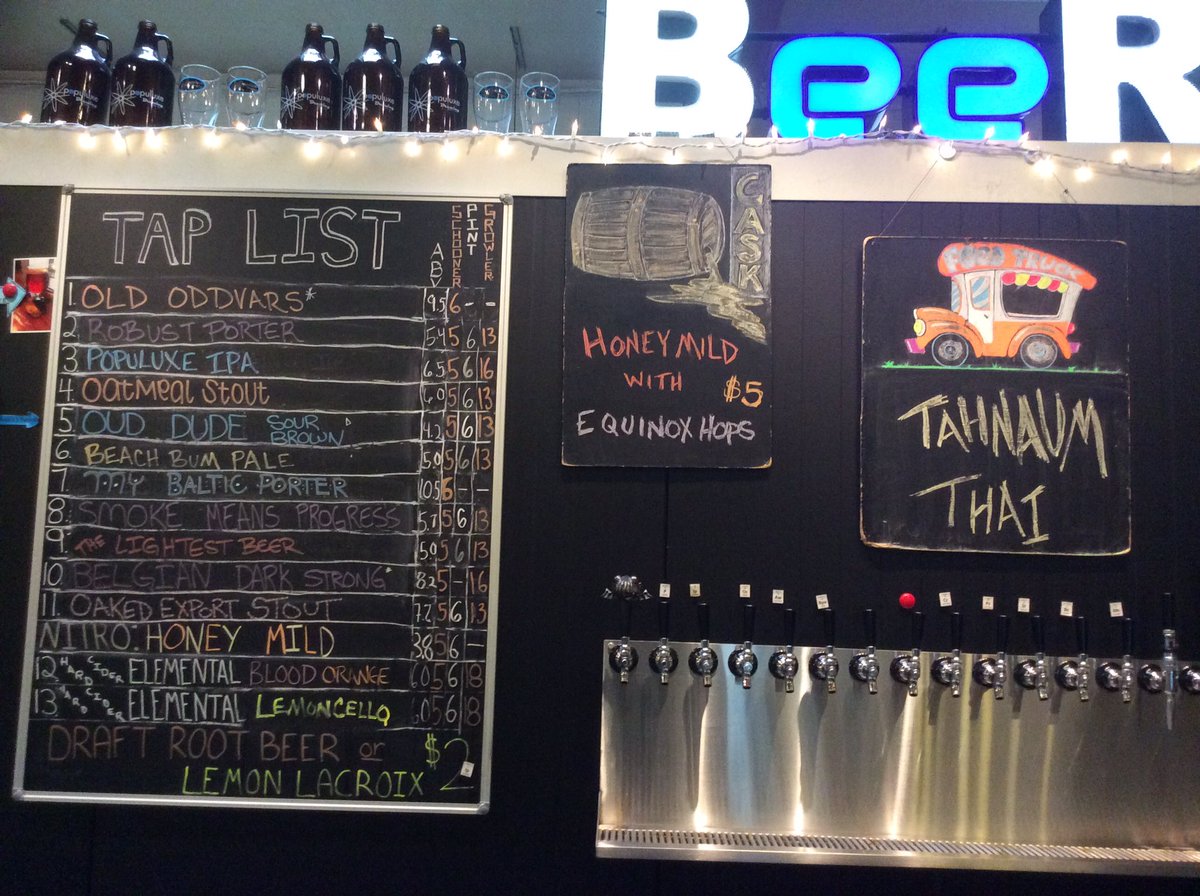 BeeR
populuxe
populuxe
populuxe
TAP LIST
ABV SCHOONER PINT GROWLER
1. OLD ODDVARS* 9.5 6 - -
2. ROBUST PORTER 5.4 5 6 13
3. POPULUXE IPA 6.5 5 6 16
4. OATMEAL STOUT 6.0 5 6 13
5. OUD DUDE SOUR BROWN 4.2 5 6 13
6. BEACH BUM PALE 5.0 5 6 13
7. BALTIC PORTER 10.5 6 - -
8. SMOKE MEANS PROGRESS 5.7 5 6 13
9. THE LIGHTEST BEER 5.9 5 6 13
10. BELGIAN DARK STRONG* 8.2 5 - 16
11. OAKED EXPORT STOUT 7.2 5 6 13
NITRO: HONEY MILD 3.8 5 6 -
12. HARD CIDER ELEMENTAL BLOOD ORANGE 6.0 5 6 18
13. HARD CIDER ELEMENTAL LEMONCELLO 6.0 5 6 18
DRAFT ROOT BEER or
LEMON LACROIX $2
CASK
HONEY MILD
WITH $5
EQUINOX HOPS
FOOD TRUCK
TAHNAUM
THAI